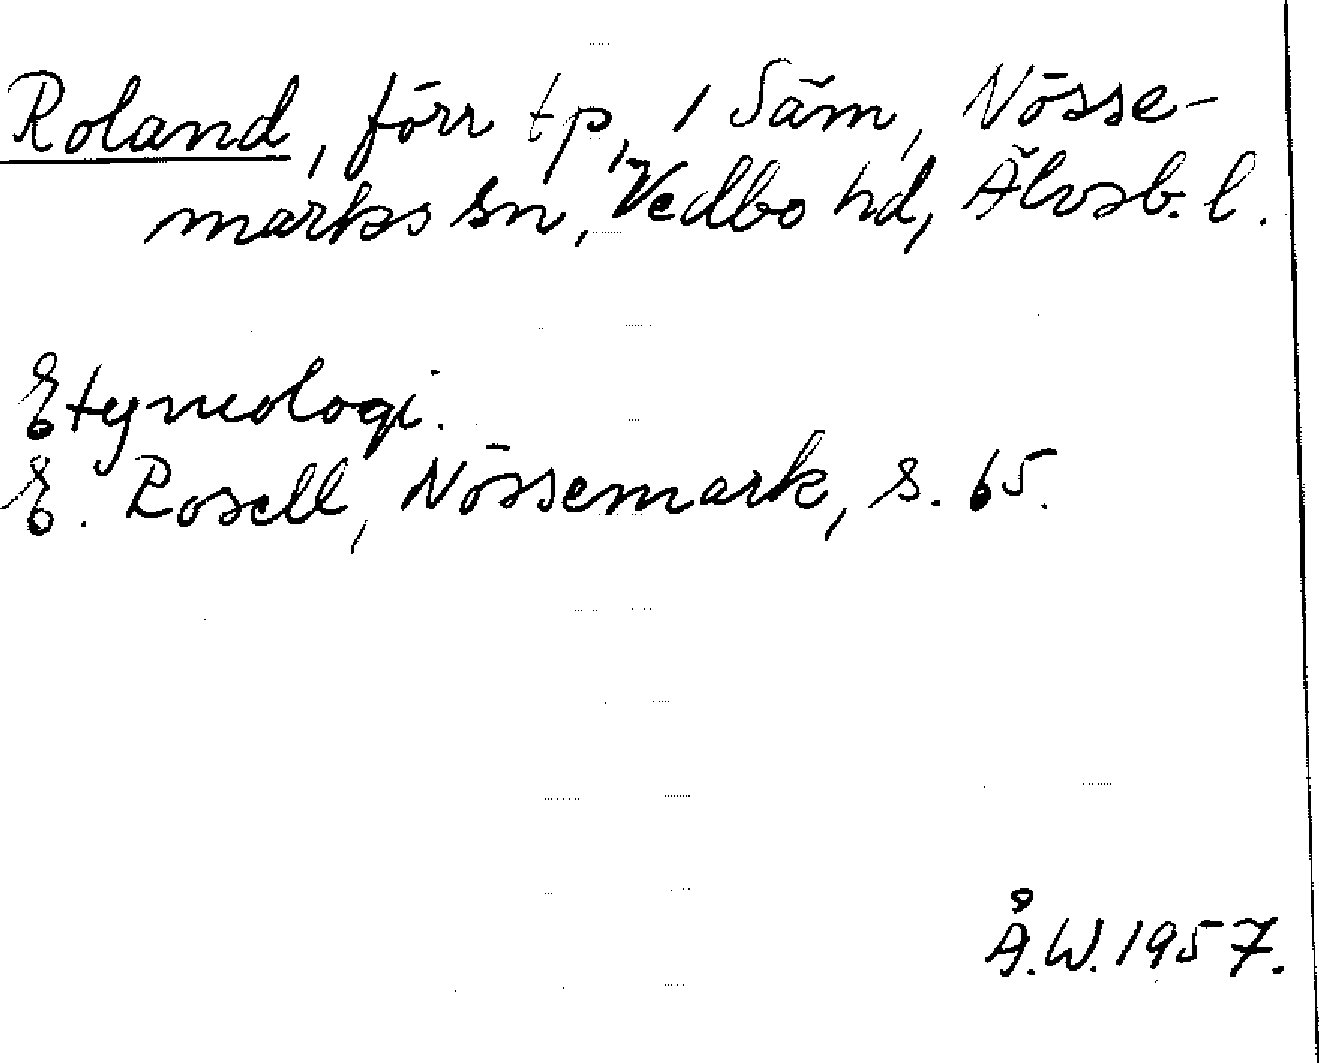 Roland, förr tp, 1 Säm, Nösse-
marks sn, Vedbo hd, Älvsb. l.
Etymologi.
E. Rosell, Nössemark, s. 65.
Å.W. 1957.